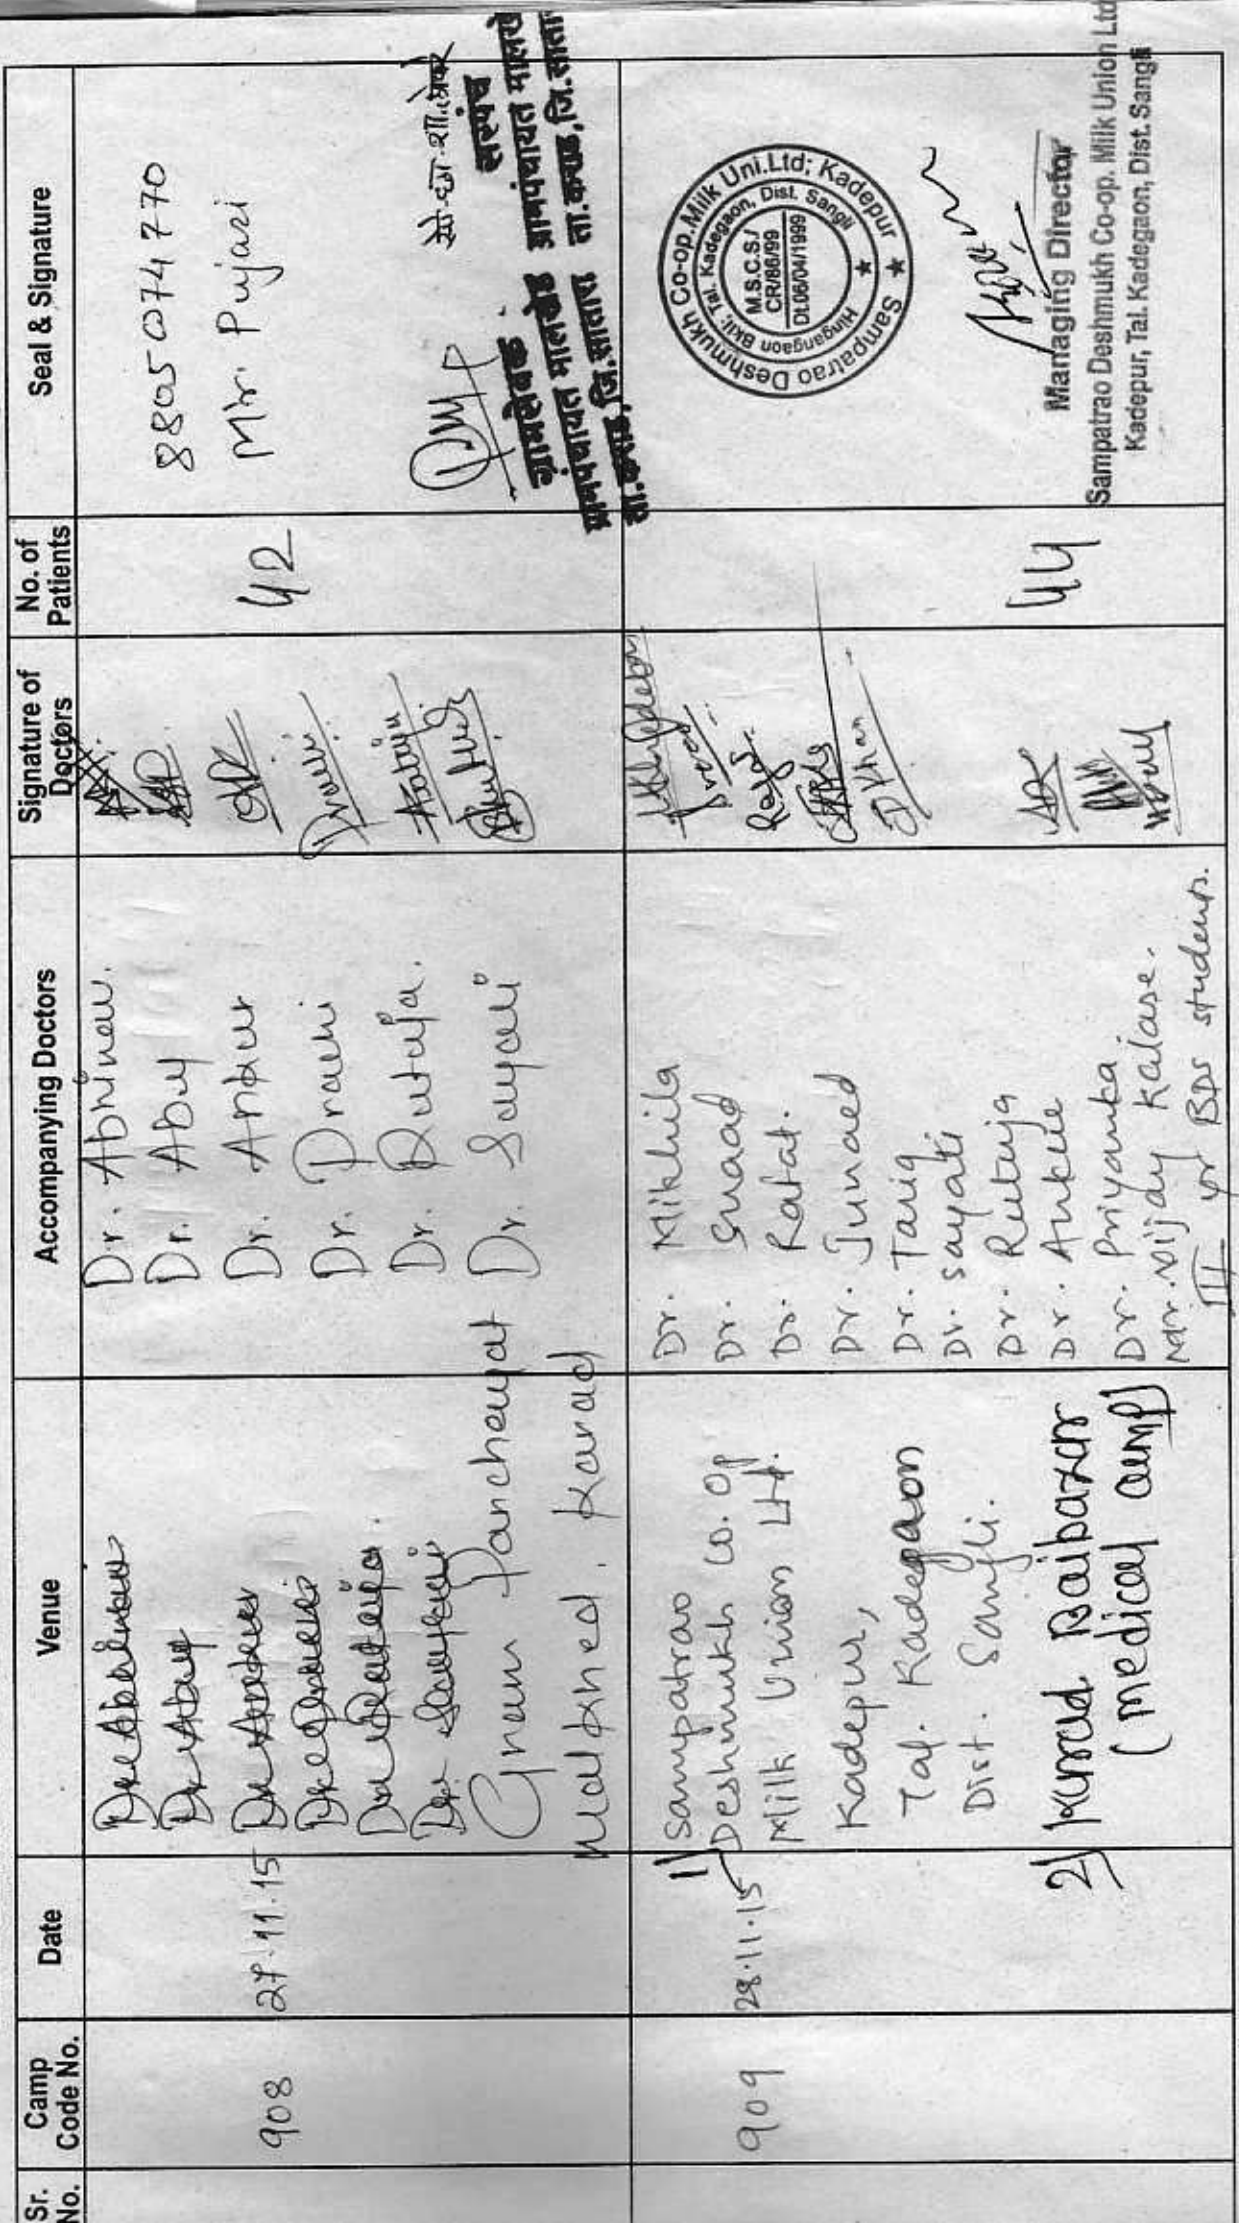 Sr. No.
Camp Code No.
Date
Venue
Accompanying Doctors
Signature of Doctors
No. of Patients
Seal & Signature
908
27.11.15
Gram Panchayat
Malkhed, Karad
Dr. Abhinav.
Dr. Abuj
Dr. Ankur
Dr. Prani
Dr. Rutuja.
Dr. Sayali
42
8805074770
Mr. Pujari
सरपंच
ग्रामपंचायत मालखेड
ता.कराड, जि.सातारा
ग्रामसेवक
ग्रामपंचायत मालखेड
ता.कराड, जि.सातारा
909
28.11.15
1) Sampatrao
Deshmukh Co. Op
Milk Union Ltd.
Kadepur,
Tal. Kadegaon
Dist. Sangli.
2) Karad Baibazar
(medical camp)
Dr. Nikhila
Dr. Sharad
Dr. Rafat.
Dr. Junaed
Dr. Tariq
Dr. Sayali
Dr. Rutuja
Dr. Ankur
Dr. Priyanka.
Mr. Vijay Kalase.
III yr BDS students.
44
Sampatrao Deshmukh Co-op.Milk Uni.Ltd; Kadepur
Hingangaon Bkil; Tal. Kadegaon, Dist. Sangli
M.S.C.S./
CR/86/99
Dt.06/04/1999
Managing Director
Sampatrao Deshmukh Co-op. Milk Union Ltd
Kadepur, Tal. Kadegaon, Dist. Sangli